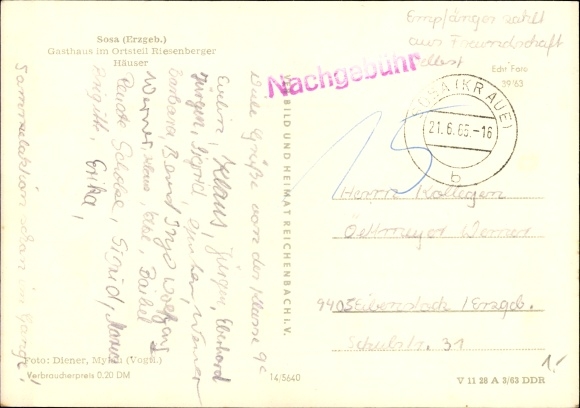 Sosa (Erzgeb.)
Gasthaus im Ortsteil Riesenberger
Häuser
Empfänger zahlt
aus Freundschaft
selbst
Nachgebühr
Echt Foto
39/63
SOSA (KR AUE)
21.6.65.-16
b
15
Herrn Kollegen
Oettmeyer Werner
9405 Eibenstock / Erzgb.
Schulstr. 31
1,-
Viele Grüße von der Klasse 9c
Klaus, Jürgen, Eberhard
Jürgen, Sigrid, Werner
Barbara, Bernd, Ingo, Wolfgang
Werner, Bärbel
Sigrid,
Brigitte, Erika,
Sammelaktion schon im Gange!
VERLAG BILD UND HEIMAT REICHENBACH i. V.
Foto: Diener, Mylau (Vogtl.)
Verbraucherpreis 0,20 DM
14/5640
V 11 28 A 3/63 DDR